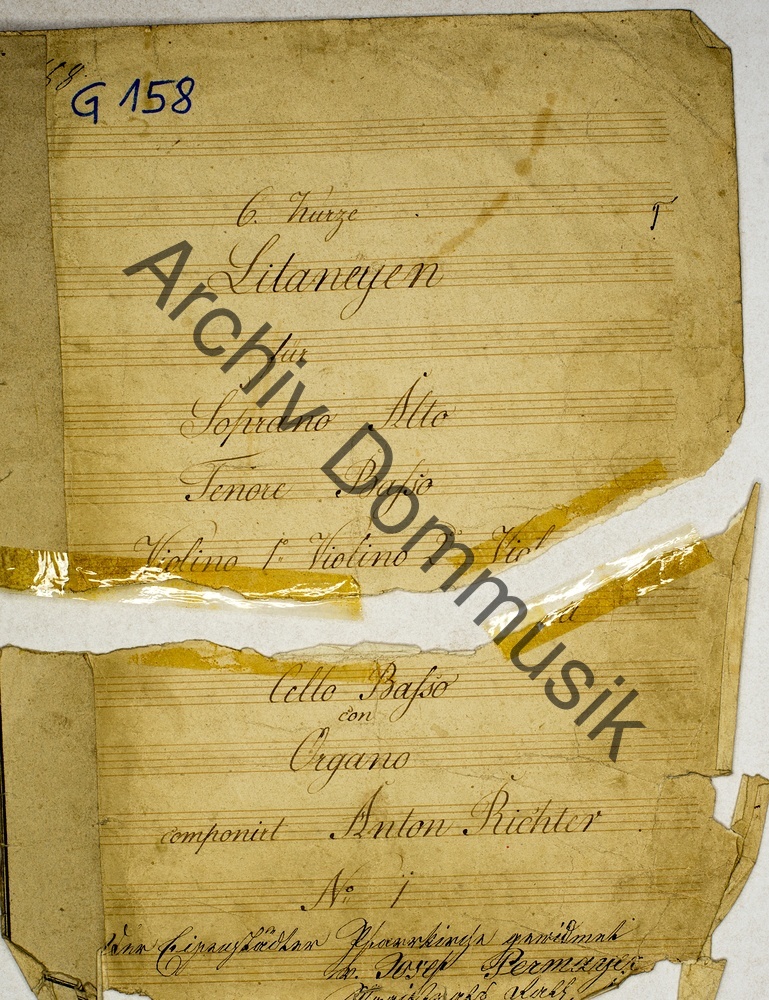 G 158
6. kurze
T
Litaneyen
für
Soprano Alto
Tenore Baſso
Violino 1º Violino 2º Viol
Cello Baſso
con
Organo
componirt Anton Richter
Nº 1
Der Eisenstädter Pfarrkirche gewidmet
v. Josef Permayer
Archiv Dommusik